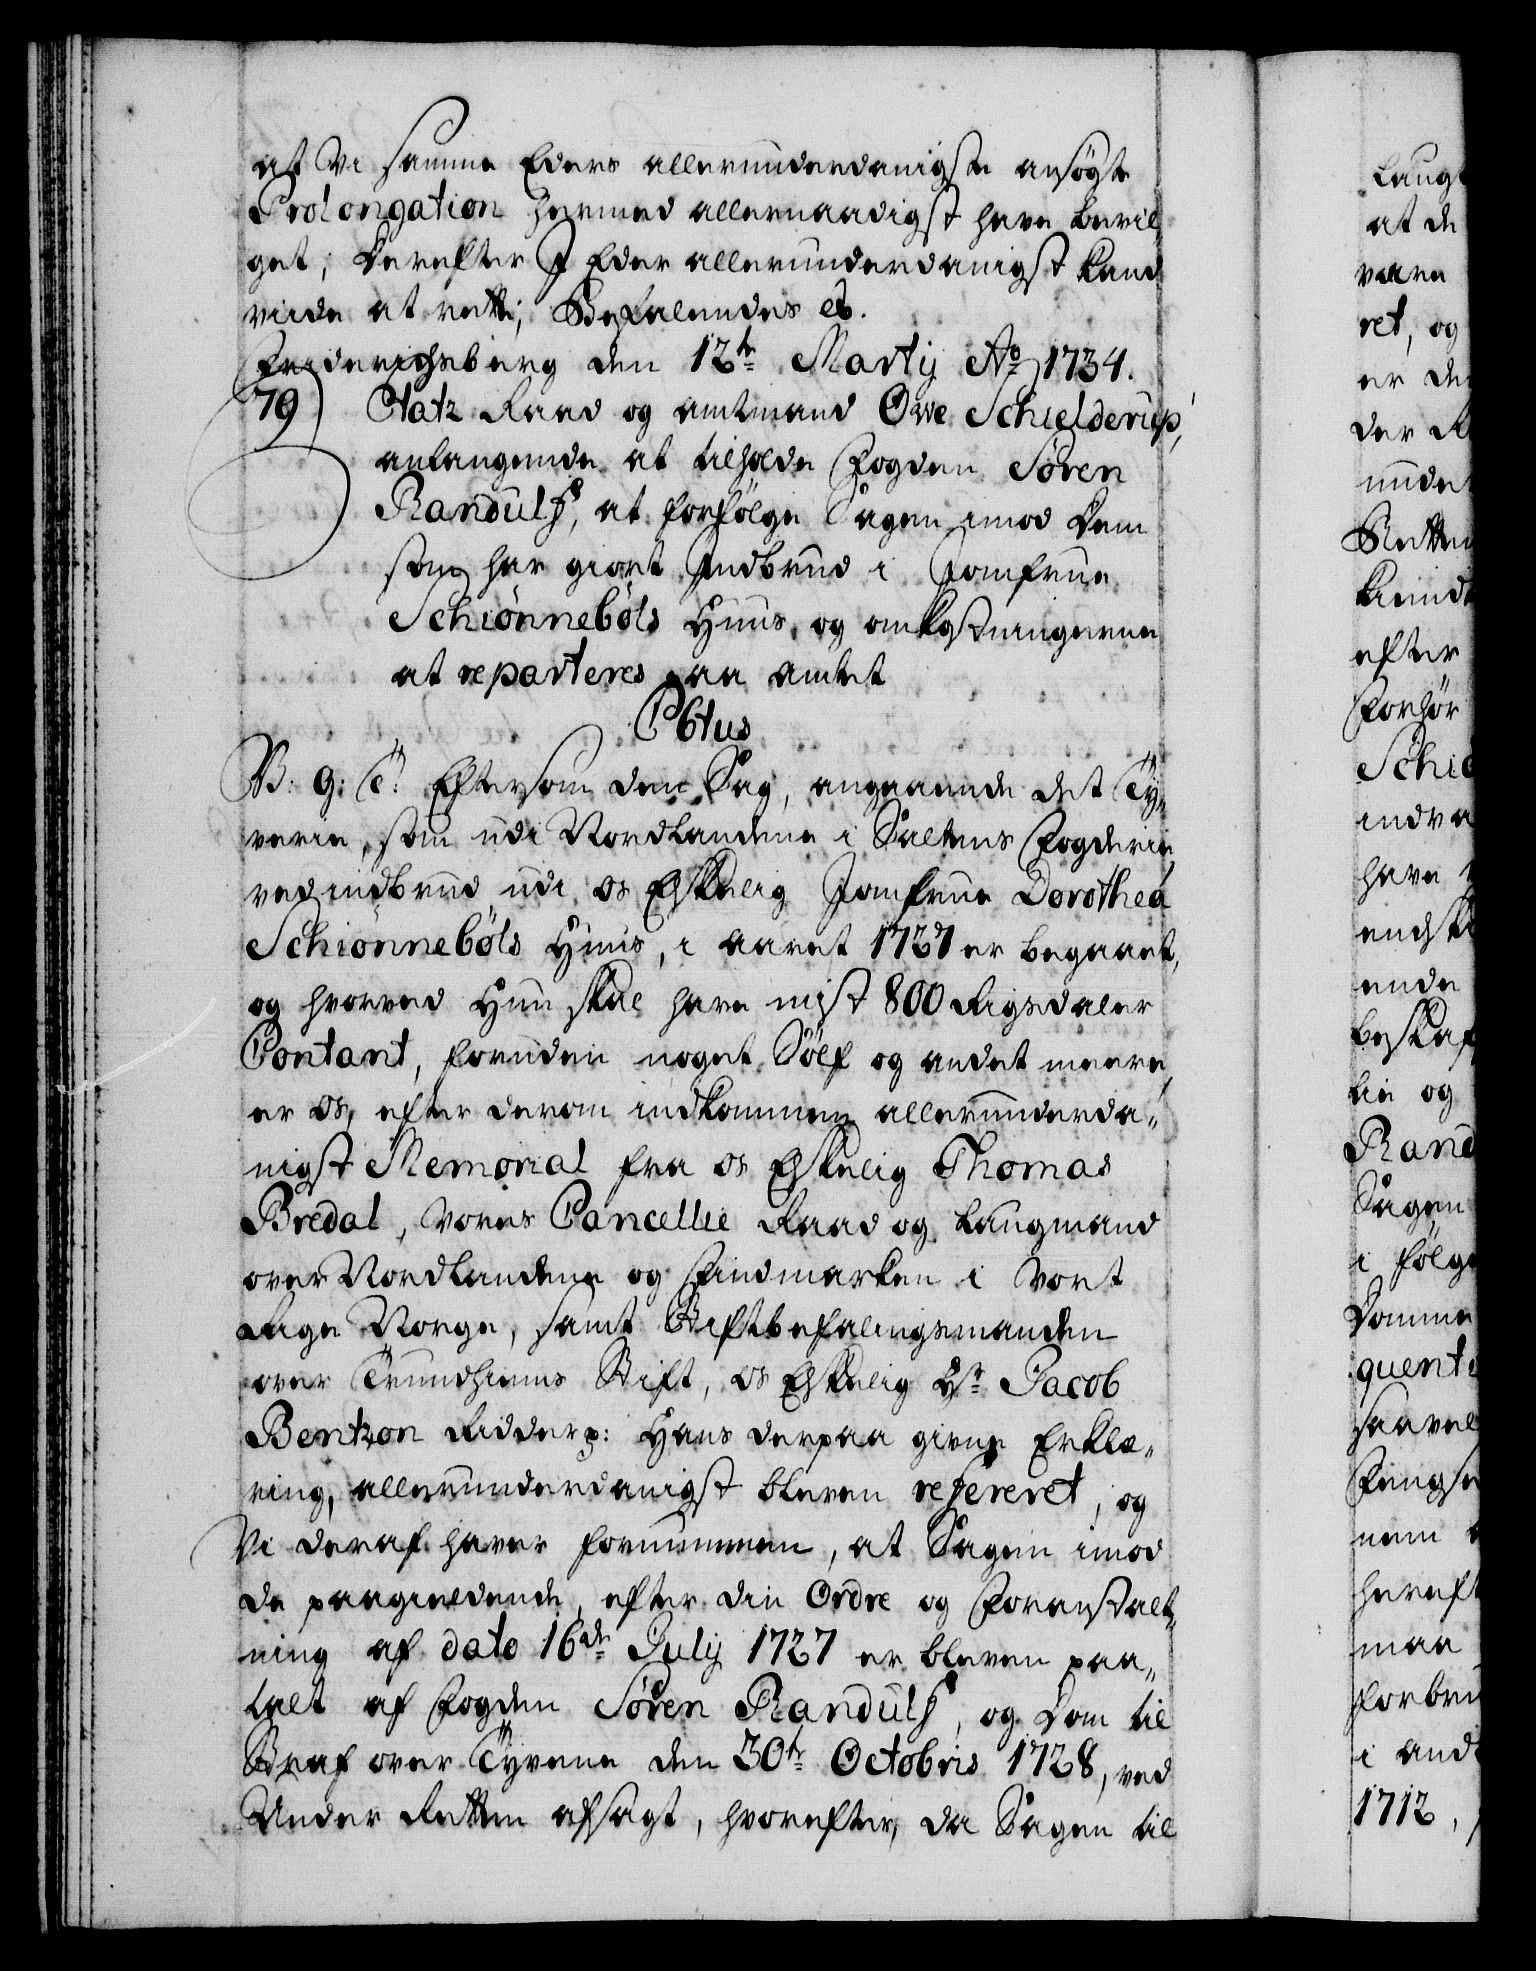 at Vi samme Eders allerunderdanigste ansøgte
Prolongation hermed allernaadigst have bevil„
get, Derefter I Eder allerunderdanigst kand
viide at rette; Befalendes etc.
Friderichsberg den 12te Martij Ao 1734.
79) Etatz Raad og amtmand Owe Schielderup,
anlangende at tilholde Fogden Søren
Randulf, at forfølge Sagen imod Dem
som har giort Indbrud i Jomfrue
Schiønnebøls Huus, og omkostningerne
at reparteres paa amtet
C6tus
V: G: T: Eftersom den Sag, angaaende det Ty„
verie, som udi Nordlandene i Saltens Fogderie
ved indbrud udi os Elskelig Jomfrue Dorothea
Schiønnebøls Huus, i aaret 1727 er begaaet,
og hvorved Hun skal have mist 800 Rigsdaler
Contant, foruden noget Sølf og andet meere,
er os, efter derom indkommen allerunderda„
nigst Memorial fra os Elskelig Thomas
Bredal, Vores Cancellie Raad og Laugmand
over Nordlandene og Findmarken i Vort
Rige Norge, samt Stiftbefalingsmanden
over Trundhiems Stift, os Elskelig Hr. Jacob
Bentzon Ridder p: Hans derpaa givne Erklæ„
ring, allerunderdanigst bleven refereret, og
Vi deraf haver fornummen, at Sagen imod
de paagieldende, efter din Ordre og Foranstalt„
ning af dato 16de Julij 1727 er bleven paa„
talt af Fogden Søren Randulf, og Dom til
Straf over Tyvene den 30te Octobris 1728, ved
Under Retten afsagt, hvorefter, da Sagen til
Laugt
at de
være
ret, og
er de
der R
unde
Rette
kiend
efter
Forhør
Schiø
indva
have
endsk
ende
beskaf
lie og
Rand
Sagen
i følge
Domme
quent
saavel
Fengse
nem
hereft
maa
forbru
i and
1712,